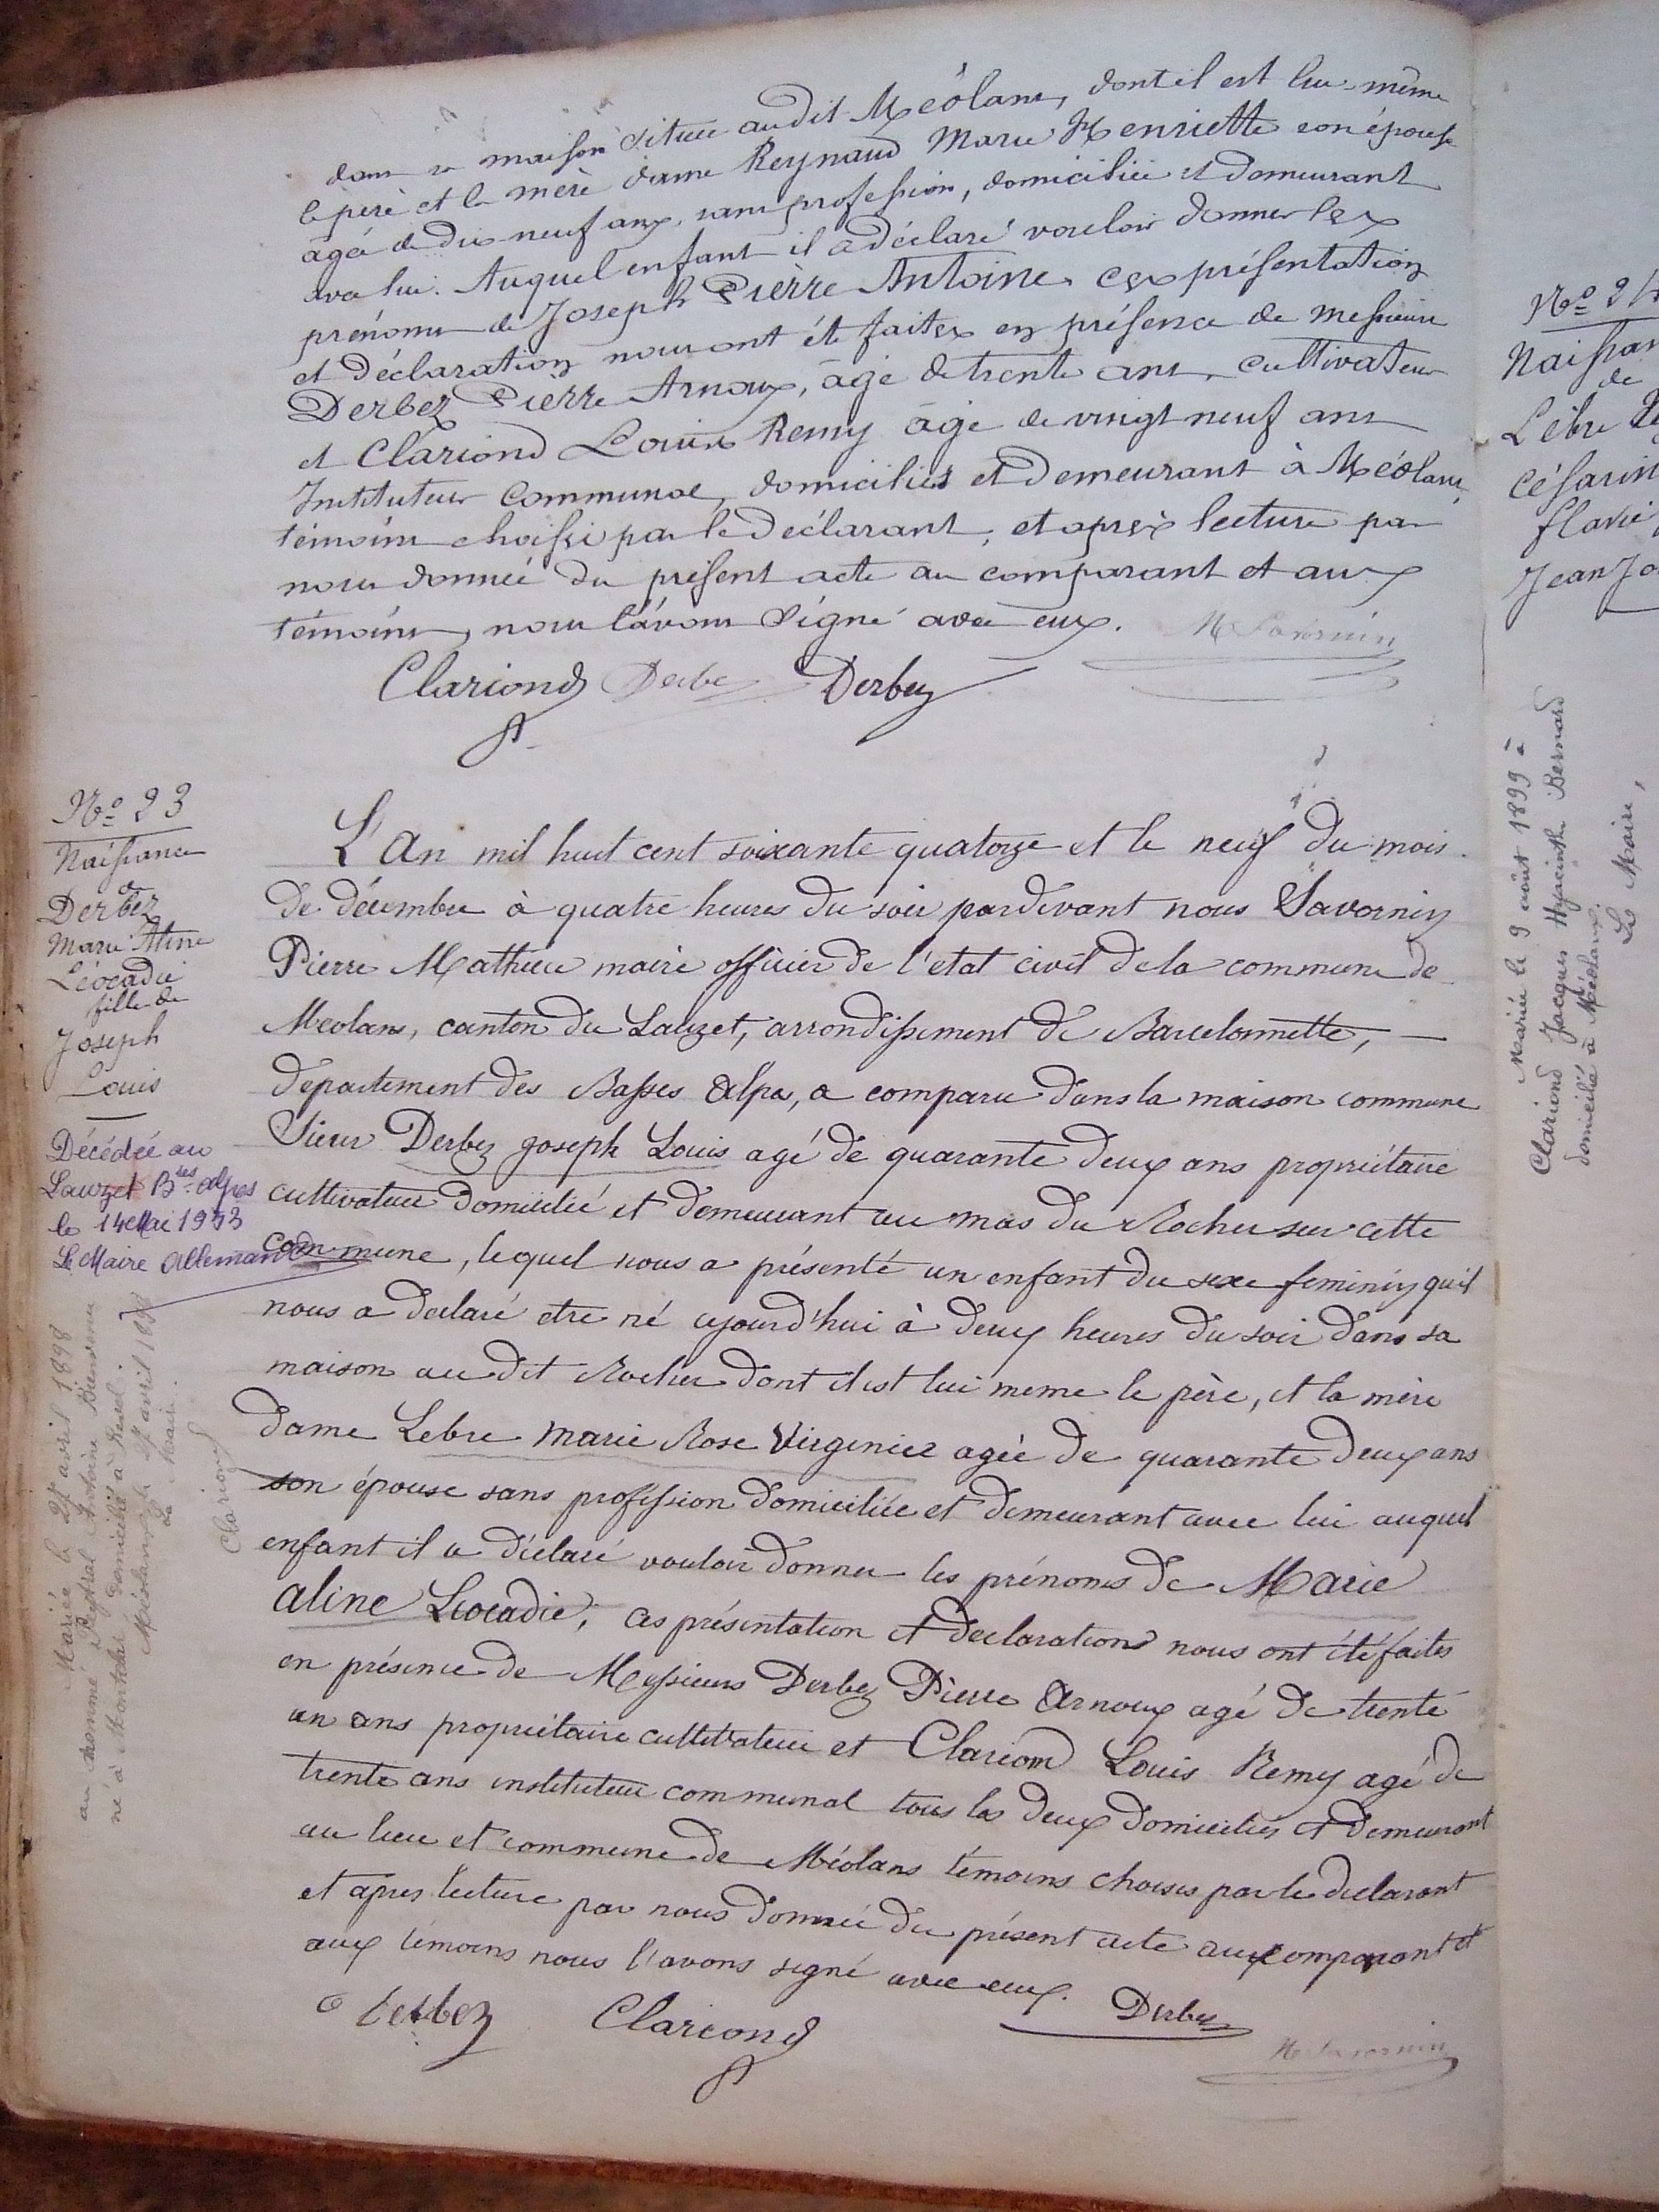 dans sa maison située audit Méolans, dont il est lui-même
le père et la mère dame Reynaud Marie Henriette son épouse
agée de dix-neuf ans, sans profession, domiciliée et demeurant
avec lui. Auquel enfant il a déclaré vouloir donner les
prénoms de Joseph Pierre Antoine. Ces présentation
et déclaration nous ont été faites en présence de messieurs
Derbez Pierre Arnoux, âgé de trente ans, cultivateur
et Clariond Louis Remy âgé de vingt neuf ans
Instituteur Communal, domiciliés et demeurant à Méolans,
témoins choisi par le déclarant, et après lecture par
nous donnée du présent acte au comparant et aux
témoins, nous l'avons signé avec eux. M Savornin
Clariond Derbe Derbez
No 23
Naissance
de
Derbez
Marie Aline
Léocadie
fille de
Joseph
Louis
Décédée au
Lauzet Bses Alpes
le 14 Mai 1943
Le Maire Allemand
Mariée le 27 avril 1898
au nommé Antoine Bienvenu
né à domicilié à
Méolans le 27 avril 1898
Le Maire.
Clariond
L'An mil huit cent soixante quatorze et le neuf du mois
de décembre à quatre heures du soir pardevant nous Savornin
Pierre Mathieu maire officier de l'etat civil de la commune de
Meolans, canton du Lauzet, arrondissement de Barcelonnette,
departement des Basses Alpes, a comparu dans la maison commune
Sieur Derbez joseph Louis agé de quarante deux ans propriétaire
cultivateur domicilié et demeurant au mas du Rocher sur cette
commune, lequel nous a présenté un enfant du sexe feminin qu'il
nous a declaré etre né ajourd'hui à deux heures du soir dans sa
maison au dit Rocher dont il est lui meme le père, et la mère
dame Lebre Marie Rose Virginie agée de quarante deux ans
son épouse sans profession domiciliée et demeurant avec lui auquel
enfant il a déclaré vouloir donner les prénoms de Marie
aline Leocadie, ces présentation et declarations nous ont été faites
en présence de Messieurs Derbez Pierre Arnoux agé de trente
un ans propriétaire cultivateur et Clariond Louis Remy agé de
trente ans instituteur communal tous les deux domiciliés et demeurant
au lieu et commune de Méolans témoins choisis par le declarant
et apres lecture par nous donnée du présent acte aux comparant et
aux témoins nous l'avons signé avec eux.
Derbez Clariond Derbez
M Savornin
No 24
Naissan
de
Lèbre
Césarin
flavie
Jean Jo
Mariée le 9 août 1899 à
Clariond Jacques Hyacinthe Bernard
domicilié à Méolans.
Le Maire,